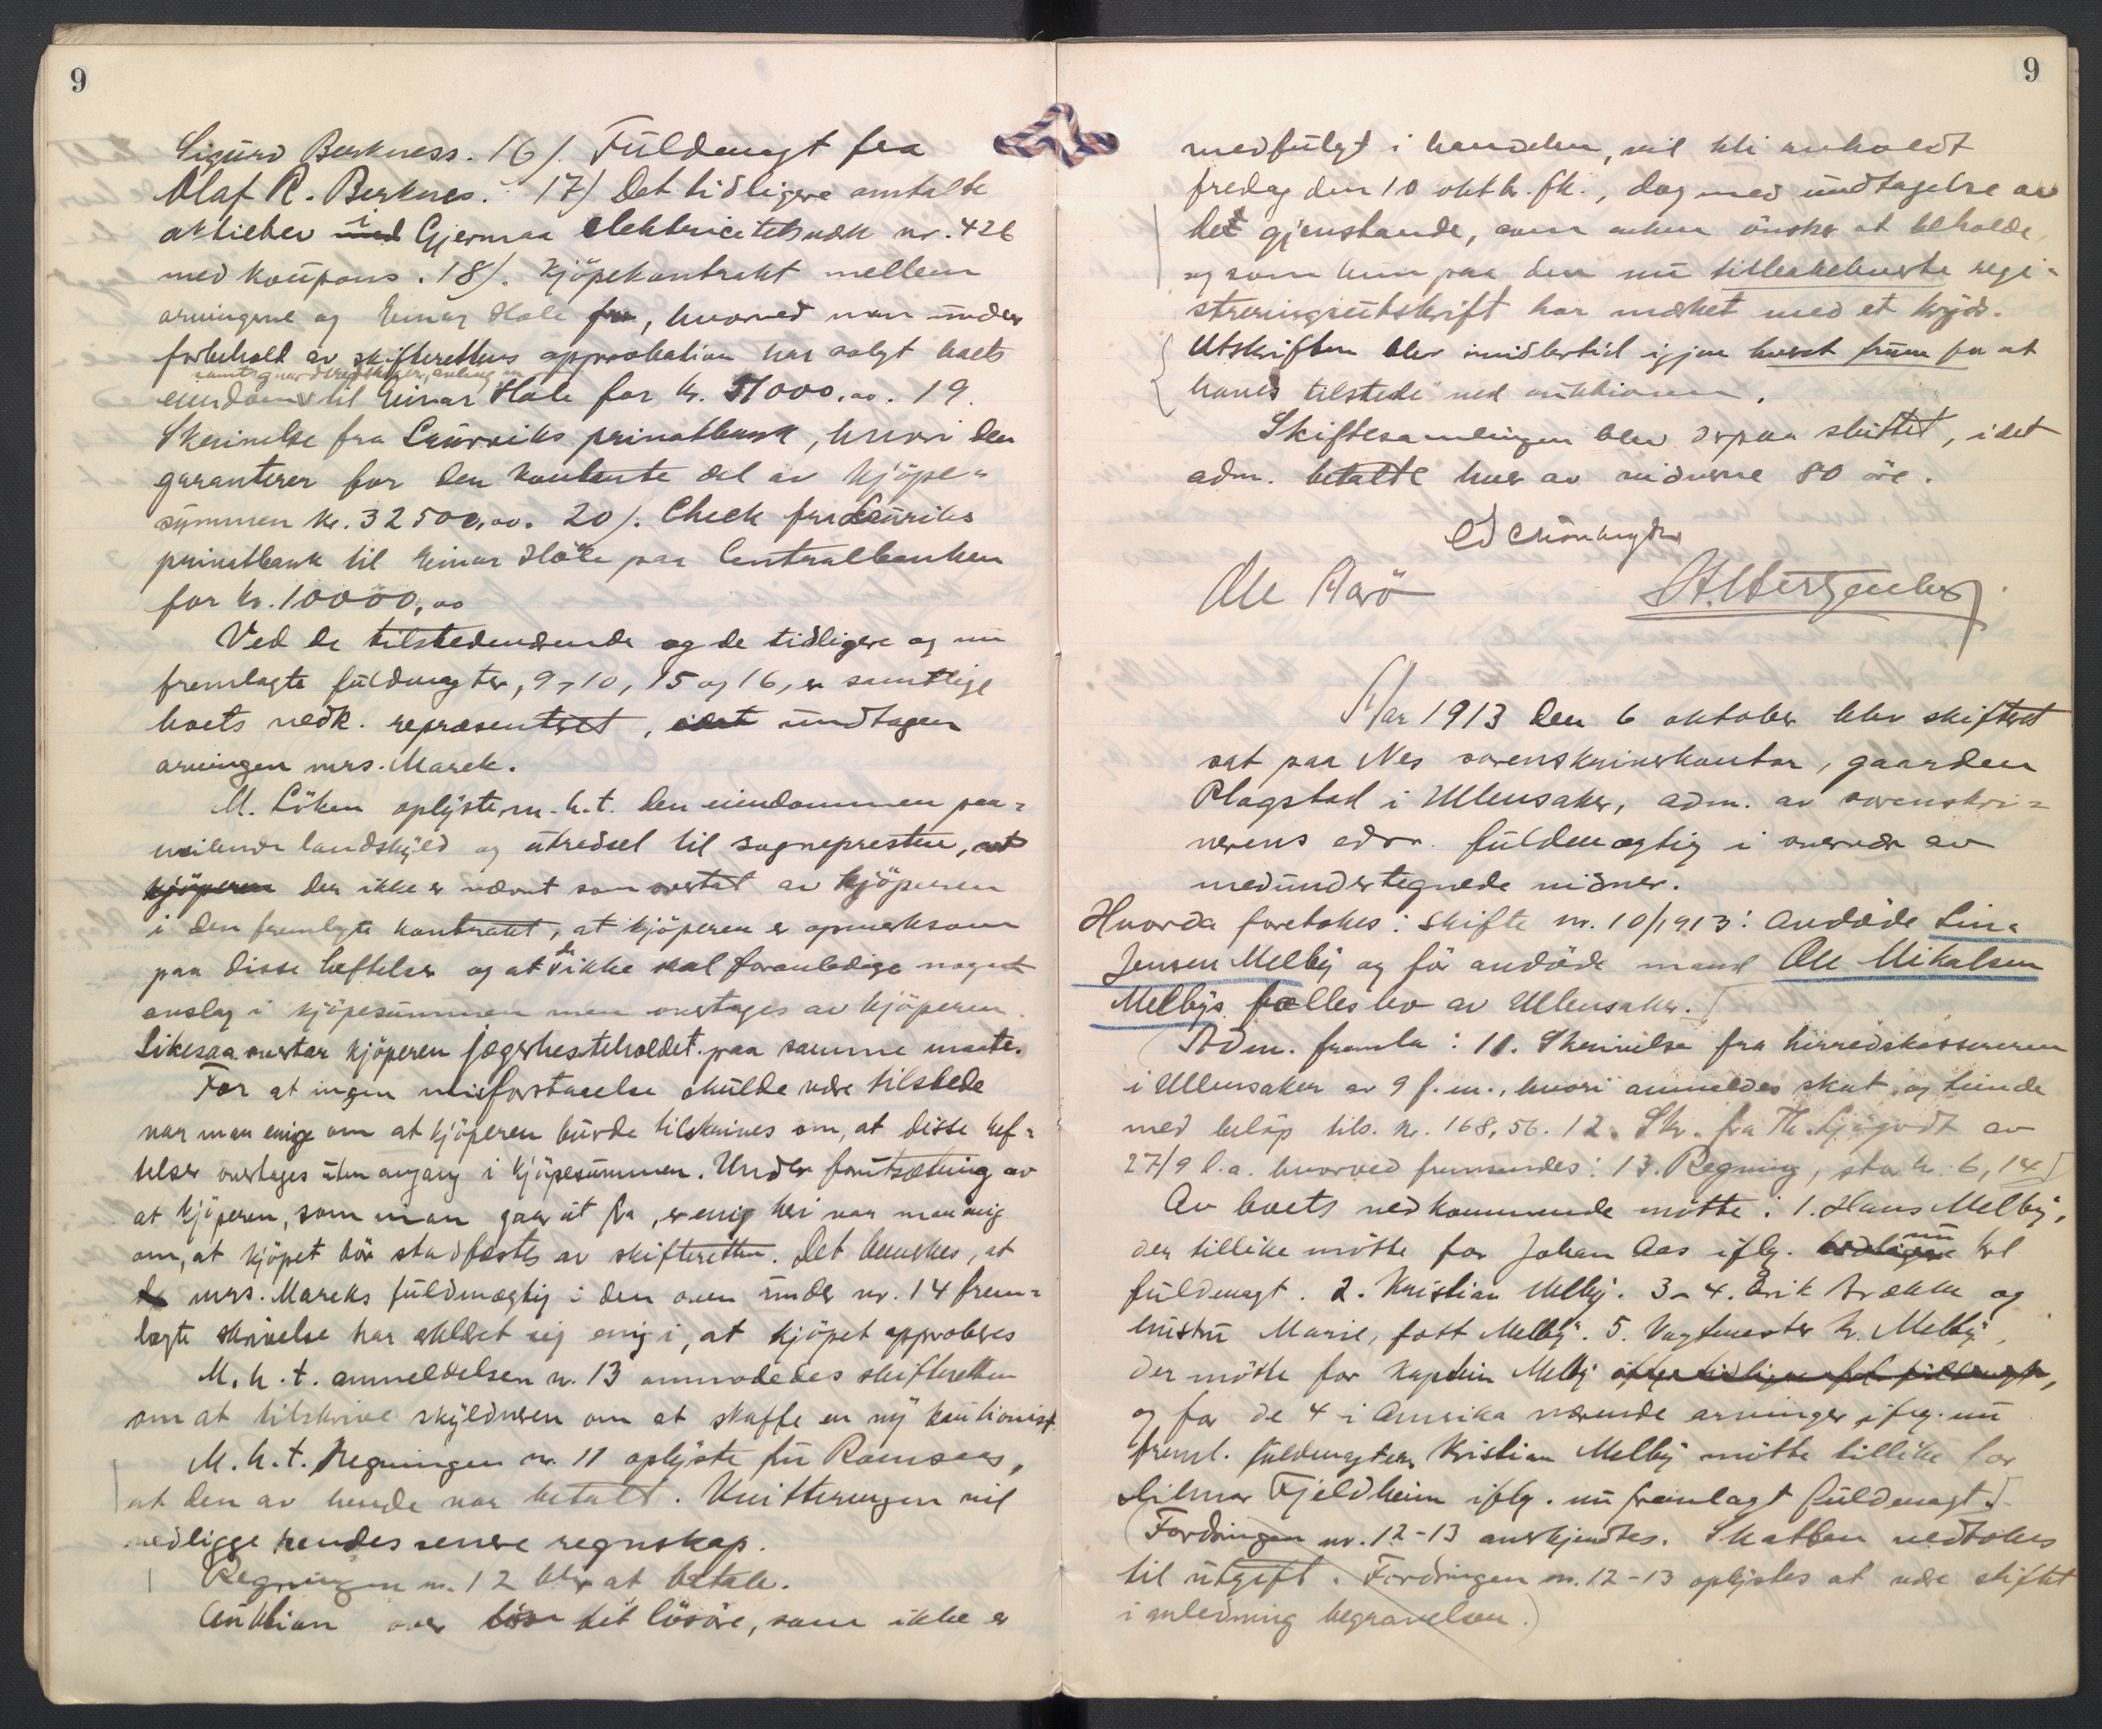 9
Sigurd Berkness. 16/. Fuldmagt fra
Olaf R. Berknes. 17/ Det tidligere omtalte
aktiebev i Gjermaa elektricitetsverk nr. 426
med koupons. 18/. Kjöpekontrakt mellem
arvingerne og Einar Hole, hvorved man under
forbehold av skifterettens approbation har solgt boets
samt gaardsredskaper, avling m
eiendom til Einar Hole for kr. 51000,oo. 19.
Skrivelse fra Laurviks privatbank, hvori den
garanterer for den kontante del av kjöpe-
summen kr. 32500,oo. 20/. Check fra Lauriks
privatbank til Einar Hole paa Centralbanken
for kr. 10000,oo
Ved de tilstedeværende og de tidligere og nu
fremlagte fuldmagter, 9-10, 15 og 16, er samtlige
boets vedk. repræsenteret, undtagen
arvingen mrs. Marek.
M. Löken oplyste m.h.t. den eiendommen paa-
hvilende landskyld og utredsel til sognepresten,
kjöperen der ikke er nævnt som overtat av kjöperen
i den fremlagte kontrakt, at kjöperen er opmerksom
paa disse heftelser og at de ikke skal foranledige noget
avslag i kjöpesummen men overtages av kjöperen.
Likesaa overtar kjöperen jægerhesteholdet paa samme maate.
For at ingen misforstaaelse skulde være tilstede
var man enige om at kjöperen burde tilskrives om, at disse hef-
telser overtages uten avgang i kjöpesummen. Under forutsætning av
at kjöperen, som man gaar ut fra, er enig heri var man enig
om, at kjöpet bör stadfæstes av skifteretten. Det bemerkes, at
mrs. Mareks fuldmægtig i den oven under nr. 14 frem-
lagte skrivelse har erklæret sig enig i, at kjöpet approberes
M.h.t. anmeldelsen nr. 13 anmodedes skifteretten
om at tilskrive skyldneren om at skaffe en ny kautionist.
M.h.t. Regningen nr. 11 oplyste fru Ramsaas,
at den av hende var betalt. Kvitteringen vil
vedligge hendes senere regnskap.
Regningen nr. 12 blir at betale.
Auktion over det lösöre, som ikke er
9
medfulgt i handelen, vil bli avholdt
fredag den 10 oktbr. fk., dog med undtagelse av
de gjenstande, som enken önsker at beholde,
og som hun paa den nu tilleirebragte regi-
streringsutskrift har merket med et kryds.
Utskriften blev imidlertid igjen for at
haves tilstede ved auktionen.
Skiftesamlingen blev derpaa sluttet, idet
adm. betalte hver av vidnerne 80 öre.
Ole Aarö
Aar 1913 den 6 oktober blev skifteret
sat paa Nes sorenskriverkontor, gaarden
Algstad i Ullensaker, adm. av sorenskri-
verens edsv. fuldmægtig i overvær av
medundertegnede vidner.
Hvorda foretokes: Skifte nr. 10/1913: avdöde Lina
Jensen Melby og för avdöde mand Ole Mikalsen
Melbys fællesbo av Ullensaker.
Adm. fremla: 11. Skrivelse fra herredskassereren
i Ullensaker av 9 f.m., hvori anmeldes skat og tiende
med belöp tils. kr. 168,56. 12. Skr. fra Th. av
27/9 d.a. hvorved fremsendes: 13. Regning, stor kr. 6,14
Av boets vedkommende mötte: 1. Hans Melby,
der tillike mötte for Johan Aas iflg. nu frl
fuldmagt. 2. Kristian Melby. 3-4. Erik Brække og
hustru Marie, fött Melby. 5. Vagtmester H. Melby,
der mötte for kaptein Melby efter tidligere frl. fuldmagt,
og for de 4 i Amerika værende arvinger iflg. nu
freml. fuldmagter. Kristian Melby mötte tillike for
Hilmar Fjeldheim iflg. nu fremlagt fuldmagt.
Fordringen nr. 12-13 anerkjendtes. Skatten vedtokes
til utgift. Fordringen nr. 12-13 oplystes at være stiftet
i anledning begravelsen.